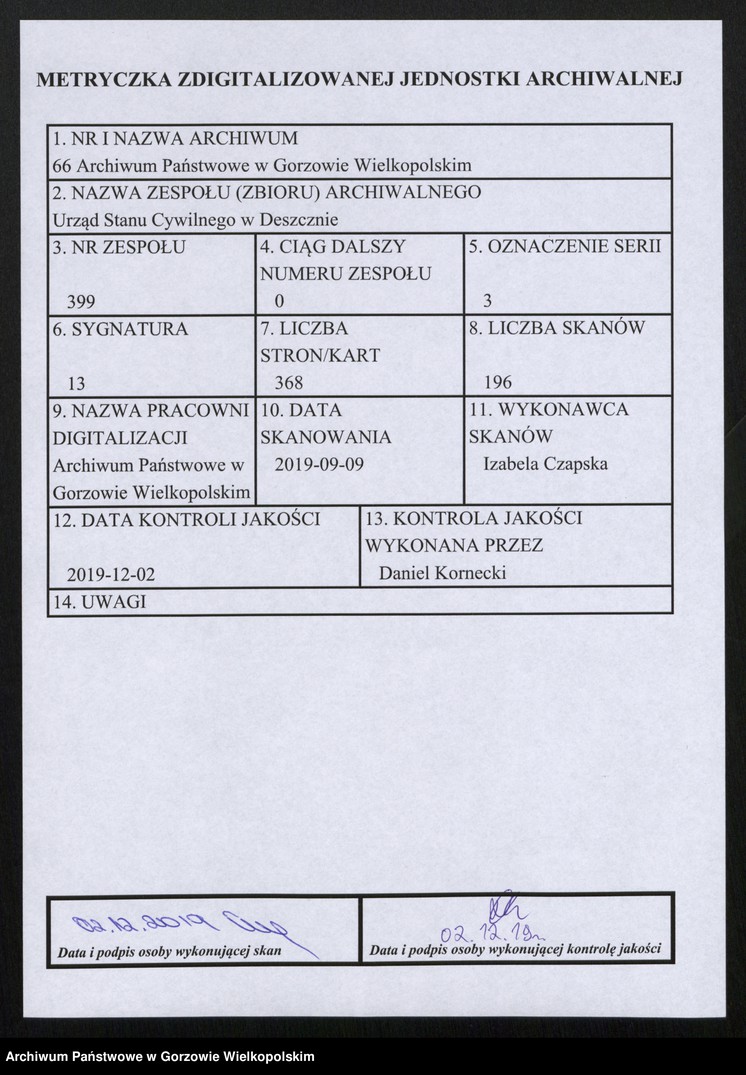 METRYCZKA ZDIGITALIZOWANEJ JEDNOSTKI ARCHIWALNEJ
1. NR I NAZWA ARCHIWUM
66 Archiwum Państwowe w Gorzowie Wielkopolskim
2. NAZWA ZESPOŁU (ZBIORU) ARCHIWALNEGO
Urząd Stanu Cywilnego w Deszcznie
3. NR ZESPOŁU
399
4. CIĄG DALSZY
NUMERU ZESPOŁU
0
5. OZNACZENIE SERII
3
6. SYGNATURA
13
7. LICZBA
STRON/KART
368
8. LICZBA SKANÓW
196
9. NAZWA PRACOWNI
DIGITALIZACJI
Archiwum Państwowe w
Gorzowie Wielkopolskim
10. DATA
SKANOWANIA
2019-09-09
11. WYKONAWCA
SKANÓW
Izabela Czapska
12. DATA KONTROLI JAKOŚCI
2019-12-02
13. KONTROLA JAKOŚCI
WYKONANA PRZEZ
Daniel Kornecki
14. UWAGI
02.12.2019
Data i podpis osoby wykonującej skan
02.12.19r.
Data i podpis osoby wykonującej kontrolę jakości
Archiwum Państwowe w Gorzowie Wielkopolskim